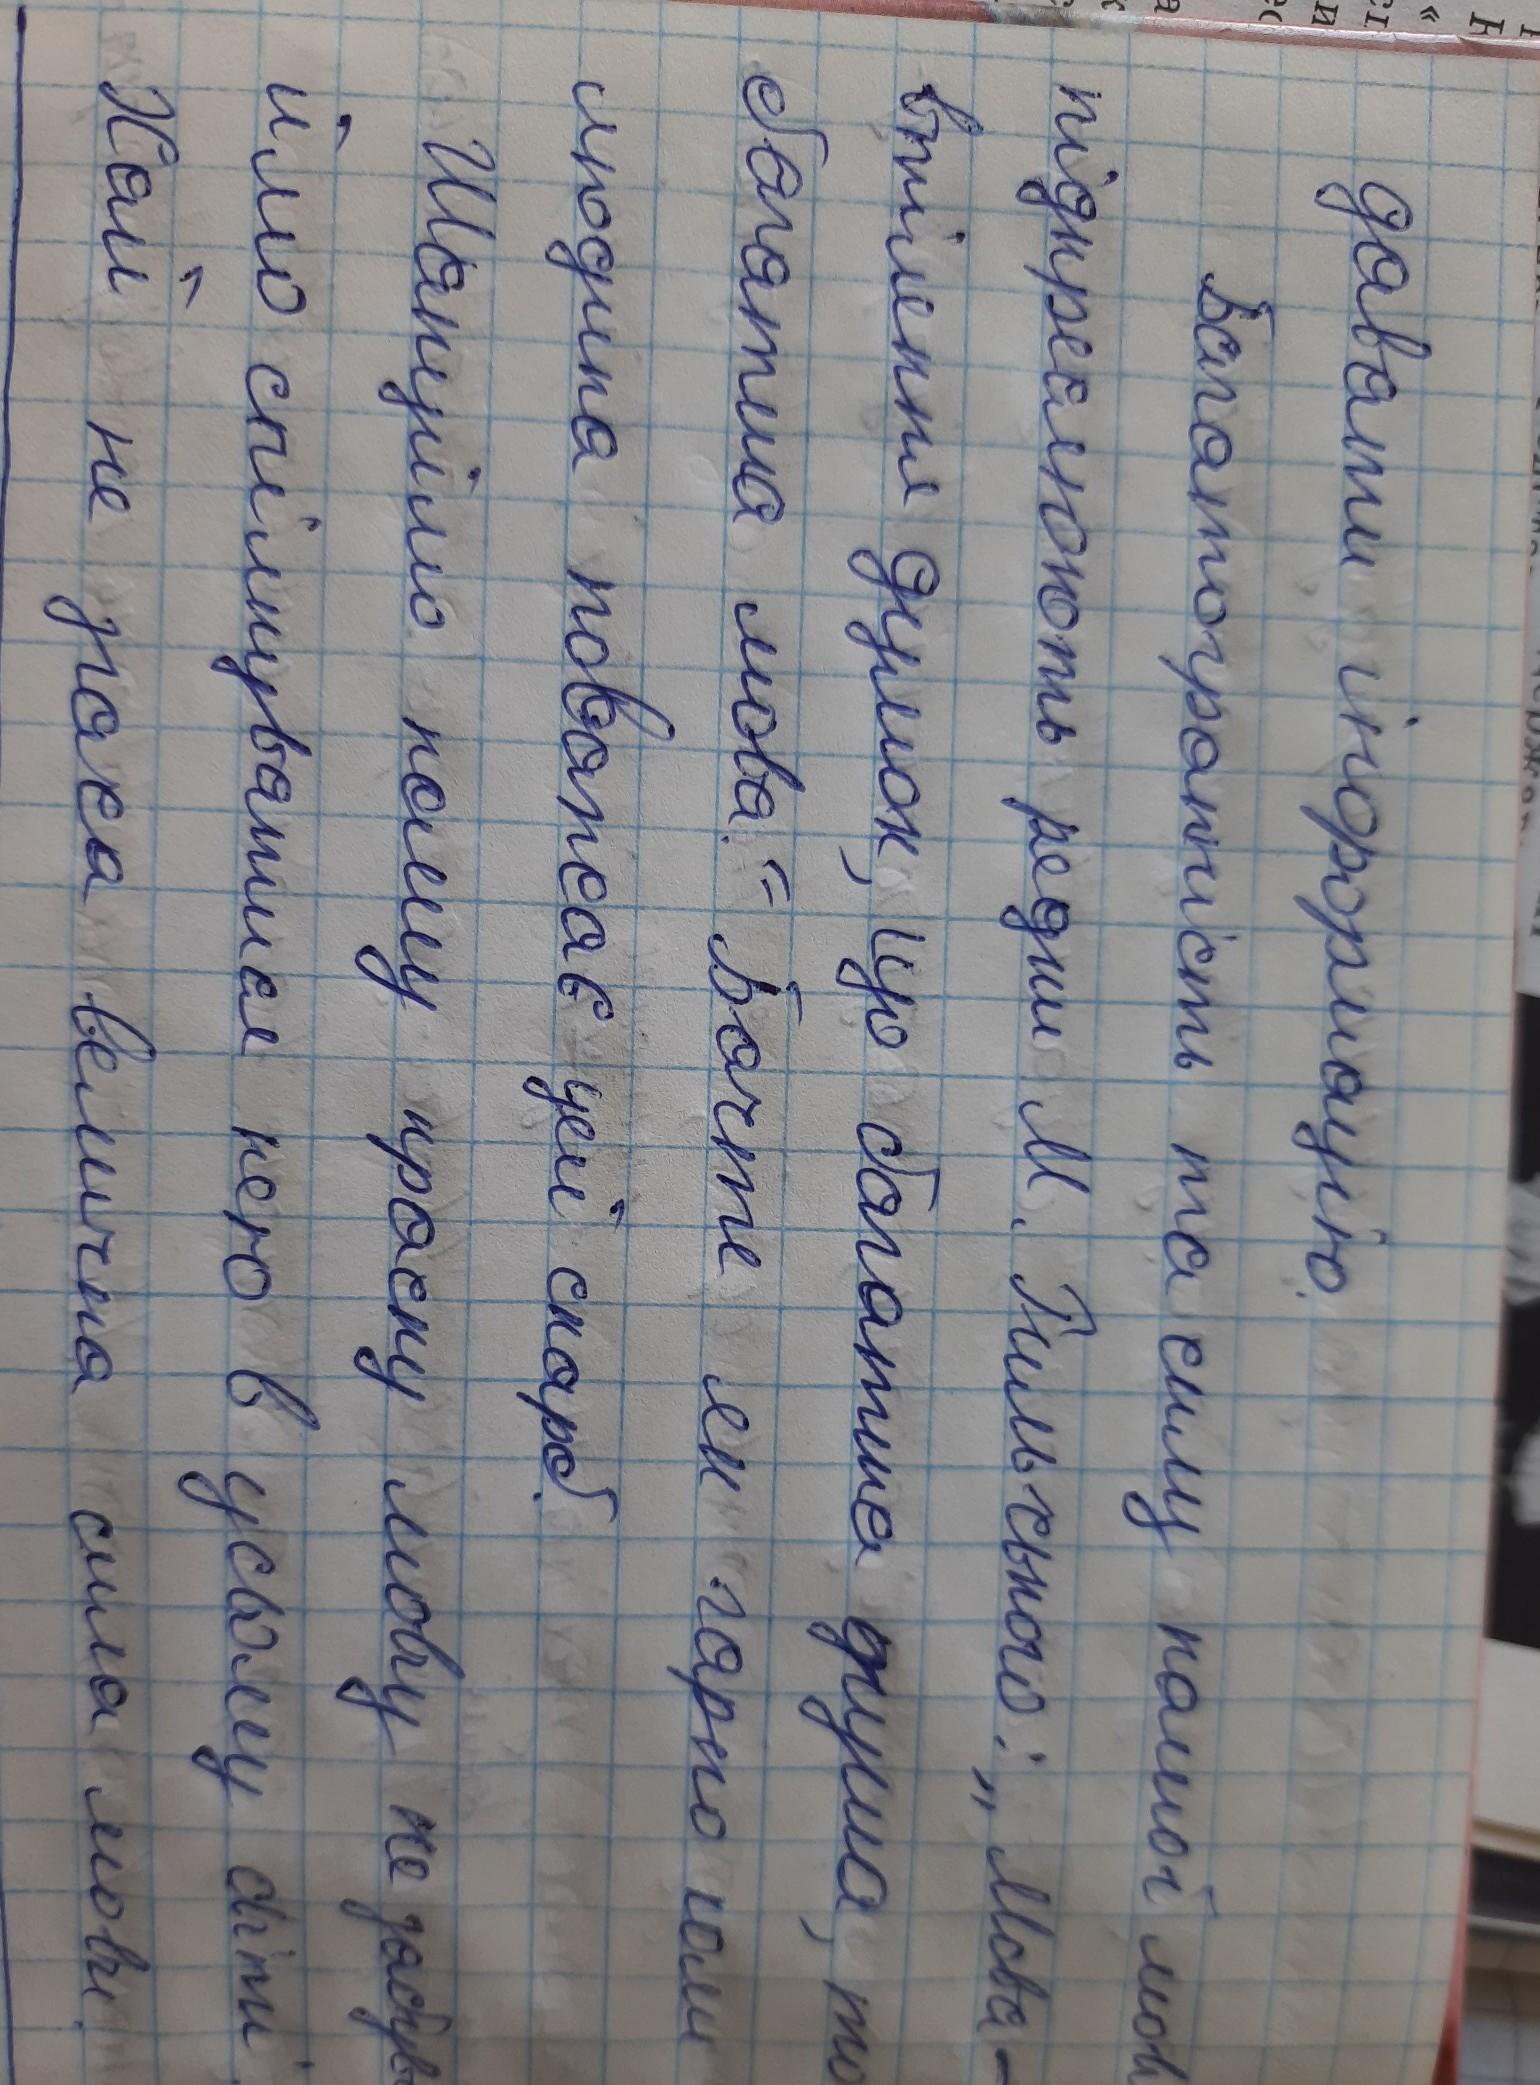 давати інформацію.
Багатогранність та силу нашої мов
підкреслюють рядки М. Рильського: „Мова –
втілення думок, що багатша думка, то
багатша мова." Бачте як гарно коли
людина поважає цей скарб.
Шануймо нашу красну мову не забув
ймо спілкуватися нею в усьому світі.
Хай не згаса велична сила мови.